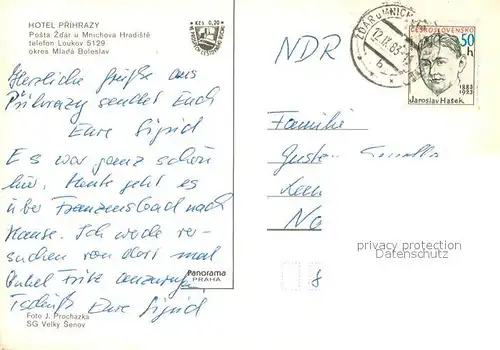 HOTEL PŘÍHRAZY
Pošta Žďár u Mnichova Hradiště
telefon Loukov 5129
okres Mladá Boleslav
Kčs 0,20
Herzliche Grüße aus
Příhrazy sendet Euch
Eure Sigrid
Es war ganz schön
hier. Heute geht es
über Franzensbad nach
Hause. Ich werde ver-
suchen von dort mal
Onkel Fritz anzurufen.
Tschüß Eure Sigrid
Foto J. Procházka
SG Velký Šenov
Panorama
PRAHA
NDR
ŽĎÁR U MNICH
12.IX.83-
b
ČESKOSLOVENSKO
50
h
1883
1923
Jaroslav Hašek
Familie
Gustav
No
privacy protection
Datenschutz
8